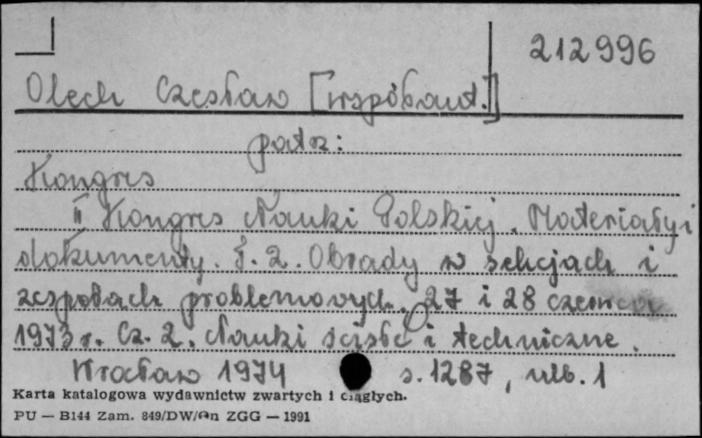 212996
Olech Czesław [współaut.]
patrz:
Kongres
II Kongres Nauki Polskiej. Materiały i
dokumenty. T. 2. Obrady w sekcjach i
zespołach problemowych. 27 i 28 czerwca
1973 r. Cz. 2. Nauki ścisłe i techniczne.
Wrocław 1974 s. 1287, nlb. 1
Karta katalogowa wydawnictw zwartych i ciągłych.
PU — B144 Zam. 849/DW/an ZGG — 1991